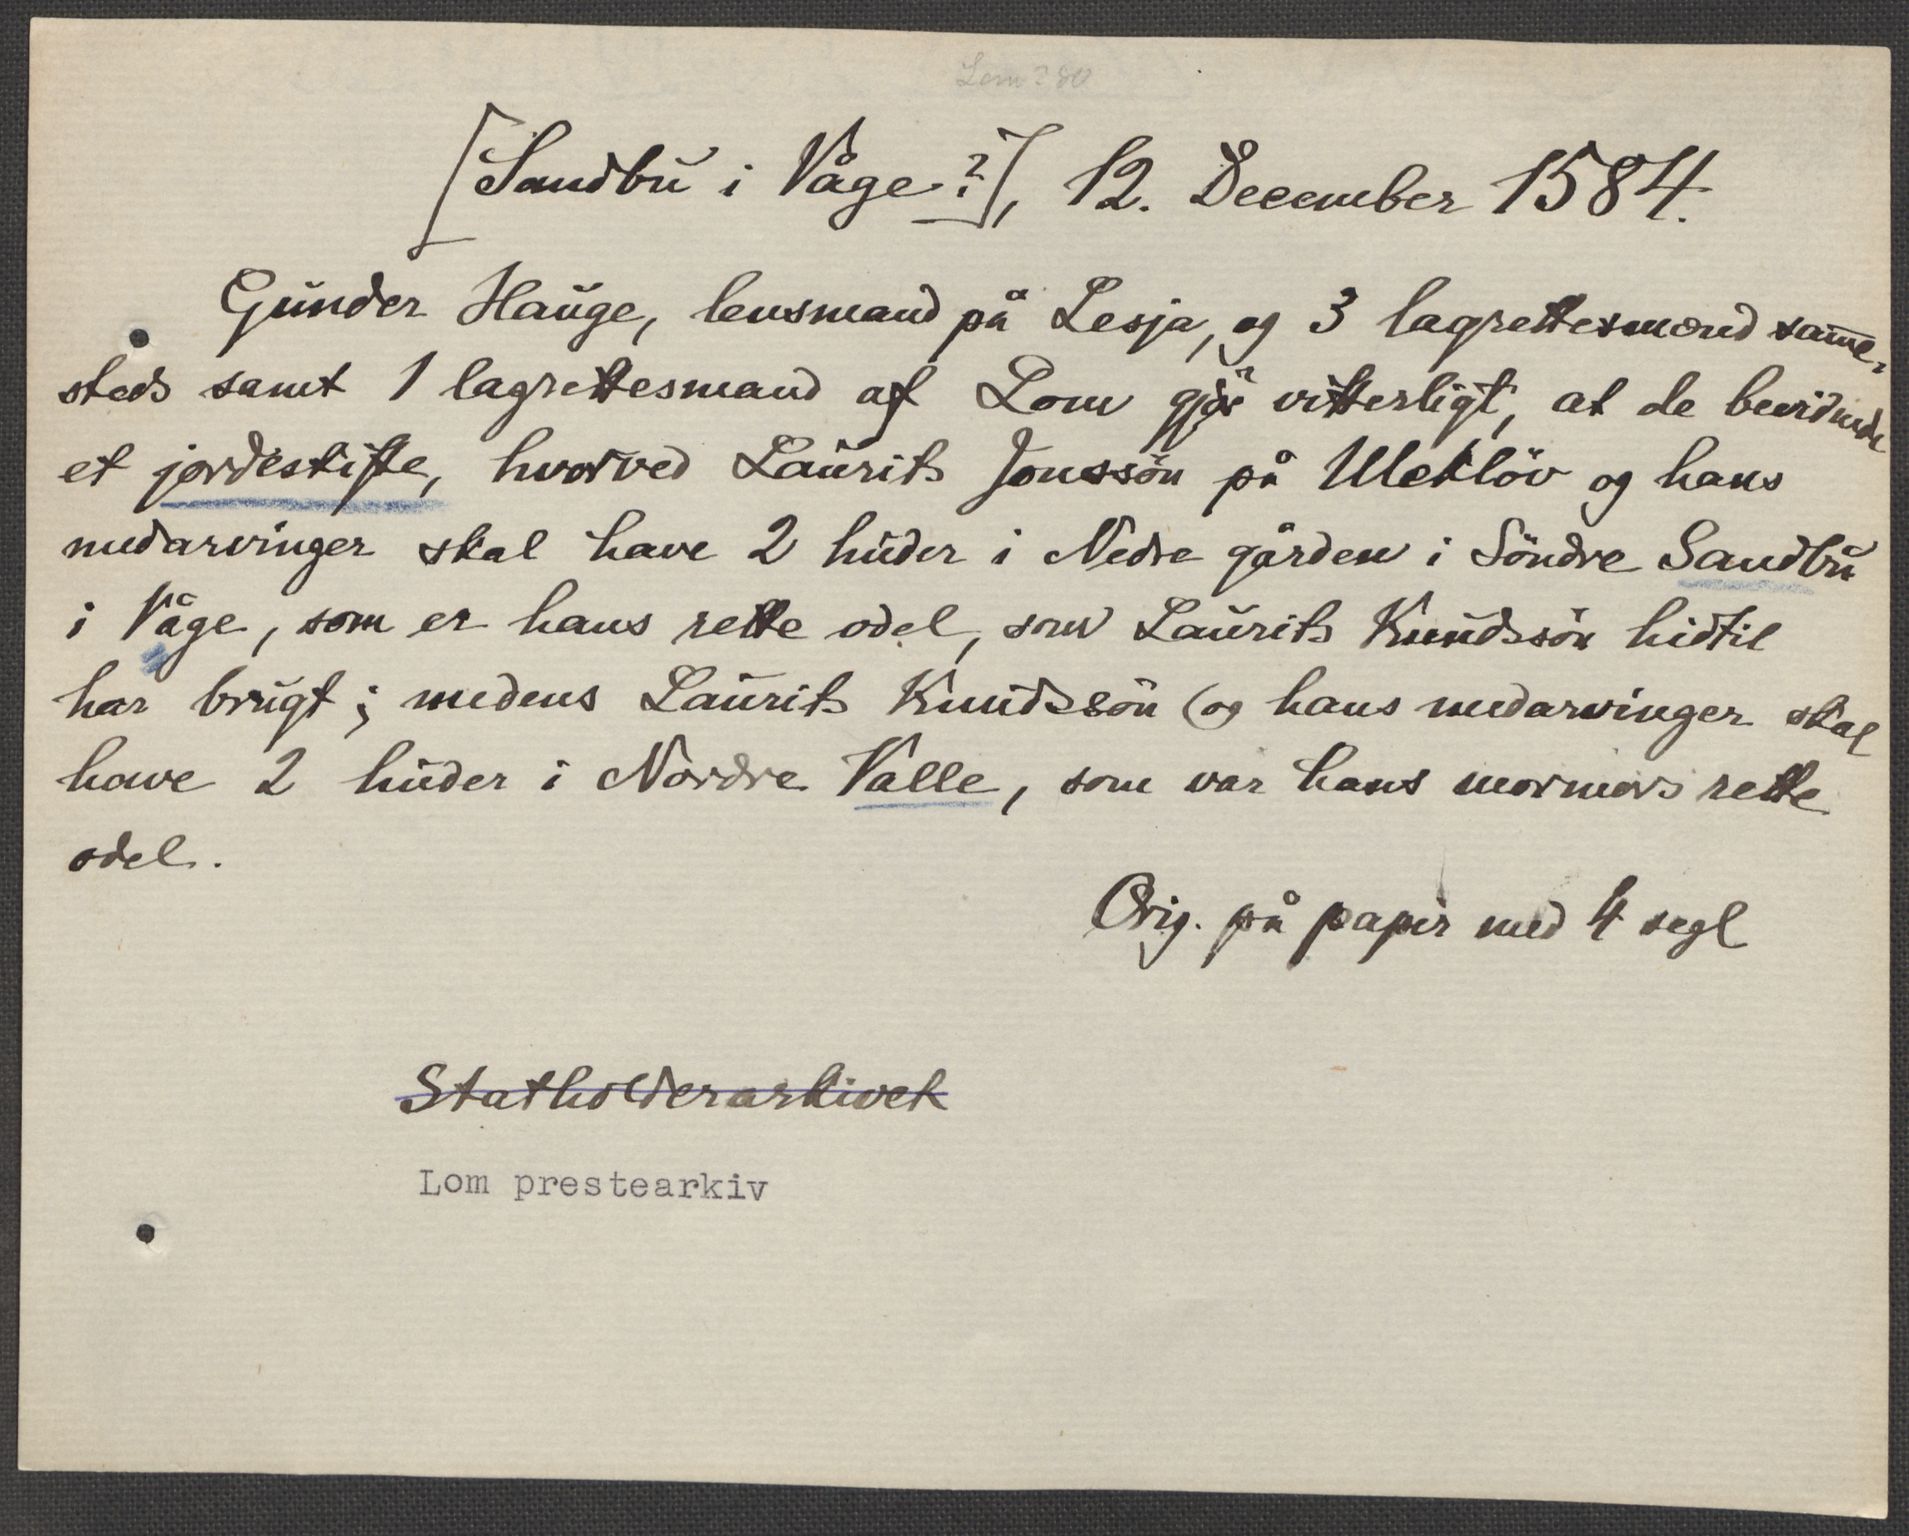 Lom 280
[Sandbu i Våge?], 12. December 1584.
Gunder Hauge, lensmand på Lesja, og 3 lagrettesmænd samme-
steds samt 1 lagrettesmand af Lom gjör vitterligt, at de bevidnede
et jordeskifte, hvorved Laurits Jonssön på Uleklöv og hans
medarvinger skal have 2 huder i Nedre gården i Söndre Sandbu
i Våge, som er hans rette odel, som Laurits Knudssön hidtil
har brugt; medens Laurits Knudssön (og hans medarvinger skal
have 2 huder i Nordre Valle, som var hans mormors rette
odel.
Orig. på papir med 4 segl
Statholderarkivet
Lom prestearkiv